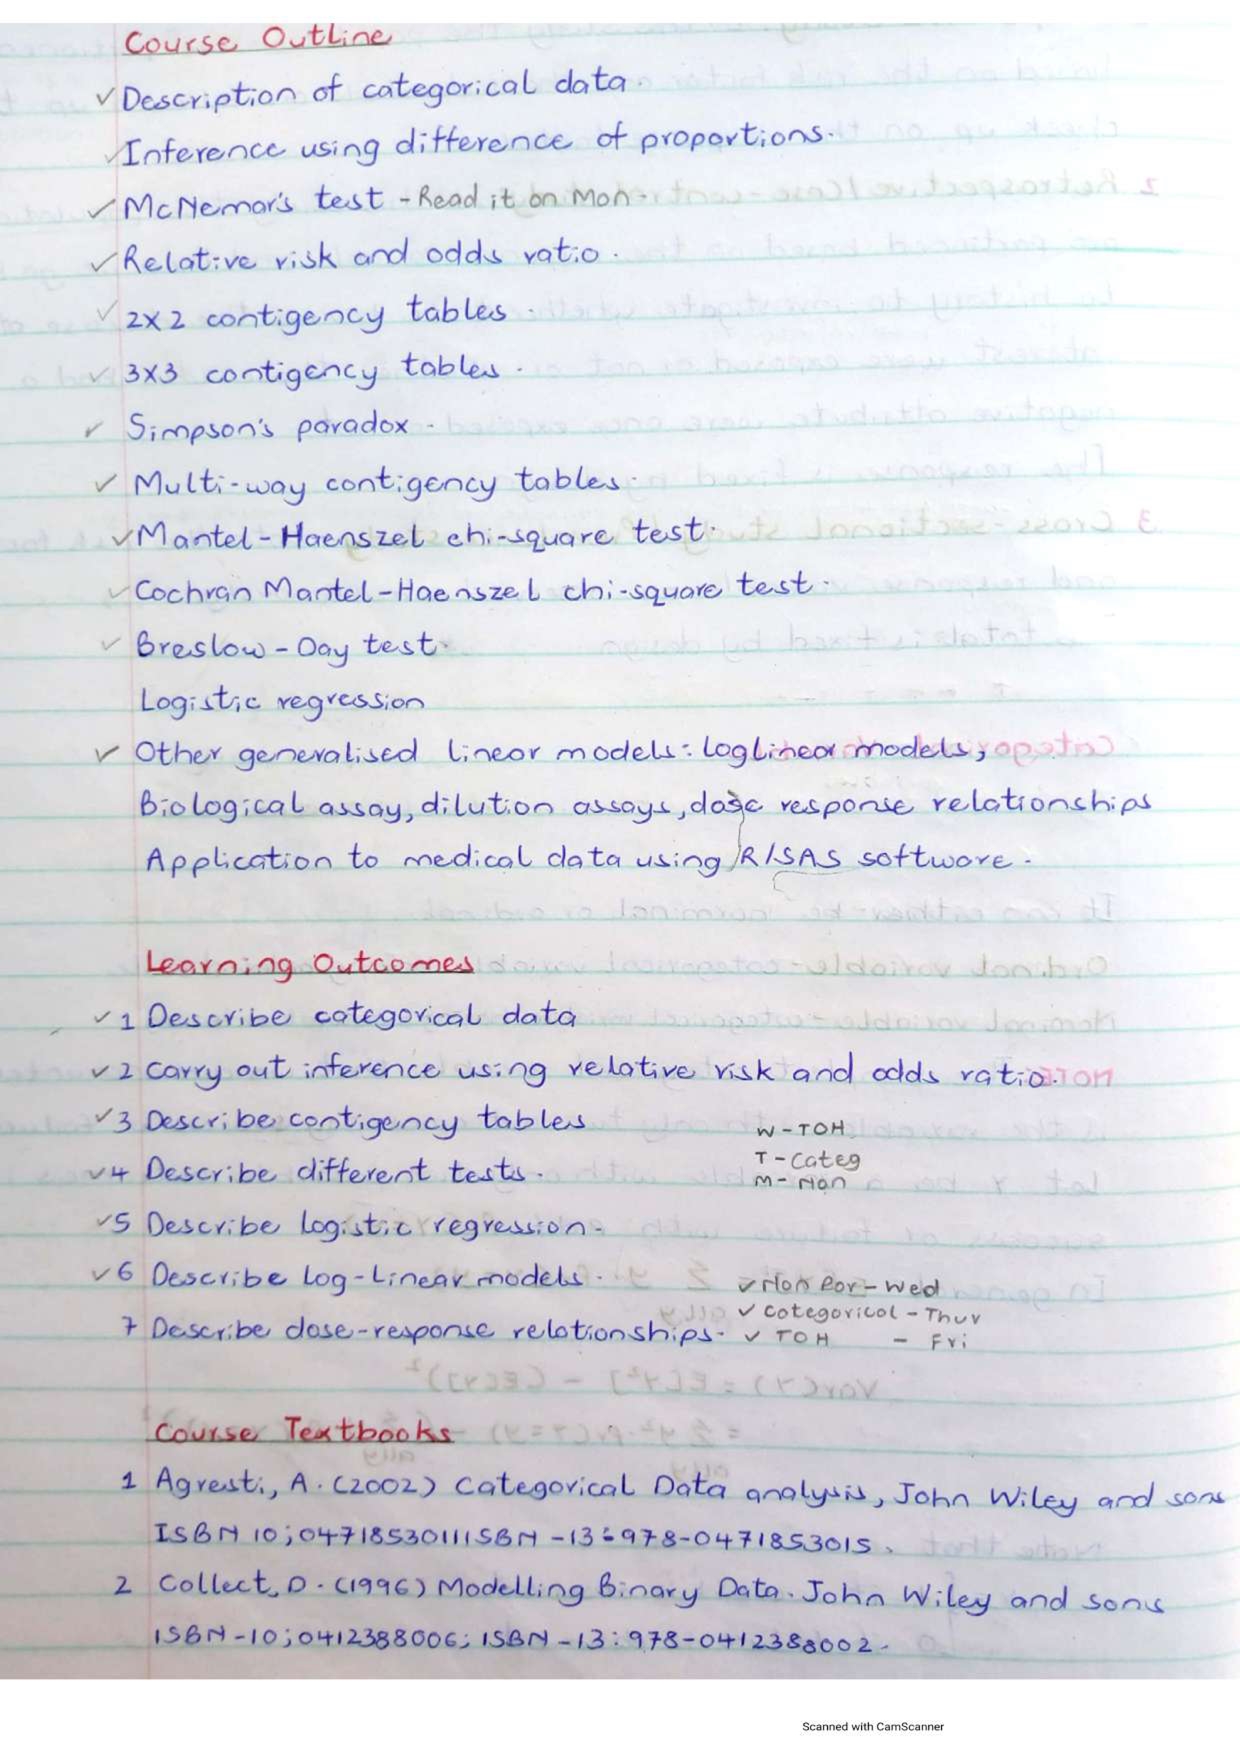 Course Outline
✓ Description of categorical data.
✓ Inference using difference of proportions.
✓ McNemar's test - Read it on Mon.
✓ Relative risk and odds ratio.
✓ 2x2 contigency tables.
✓ 3x3 contigency tables.
✓ Simpson's paradox.
✓ Multi-way contigency tables.
✓ Mantel-Haenszel chi-square test.
✓ Cochran Mantel-Haenszel chi-square test.
✓ Breslow-Day test.
Logistic regression
✓ Other generalised linear models: loglinear models,
Biological assay, dilution assays, dose response relationships
Application to medical data using R/SAS software.
Learning Outcomes
✓ 1 Describe categorical data
✓ 2 Carry out inference using relative risk and odds ratio.
✓ 3 Describe contigency tables
W - TOH
T - Categ
✓ 4 Describe different tests.
M - Non
✓ 5 Describe logistic regression.
✓ 6 Describe log-linear models.
✓ Non Par - Wed
✓ Categorical - Thur
7 Describe dose-response relationships.
✓ TOH - Fri
Course Textbooks
1 Agresti, A. (2002) Categorical Data analysis, John Wiley and sons
ISBN 10; 0471853011 ISBN -13: 978-0471853015.
2 Collect, D. (1996) Modelling Binary Data. John Wiley and sons
ISBN-10; 0412388006; ISBN -13: 978-0412388002.
Scanned with CamScanner